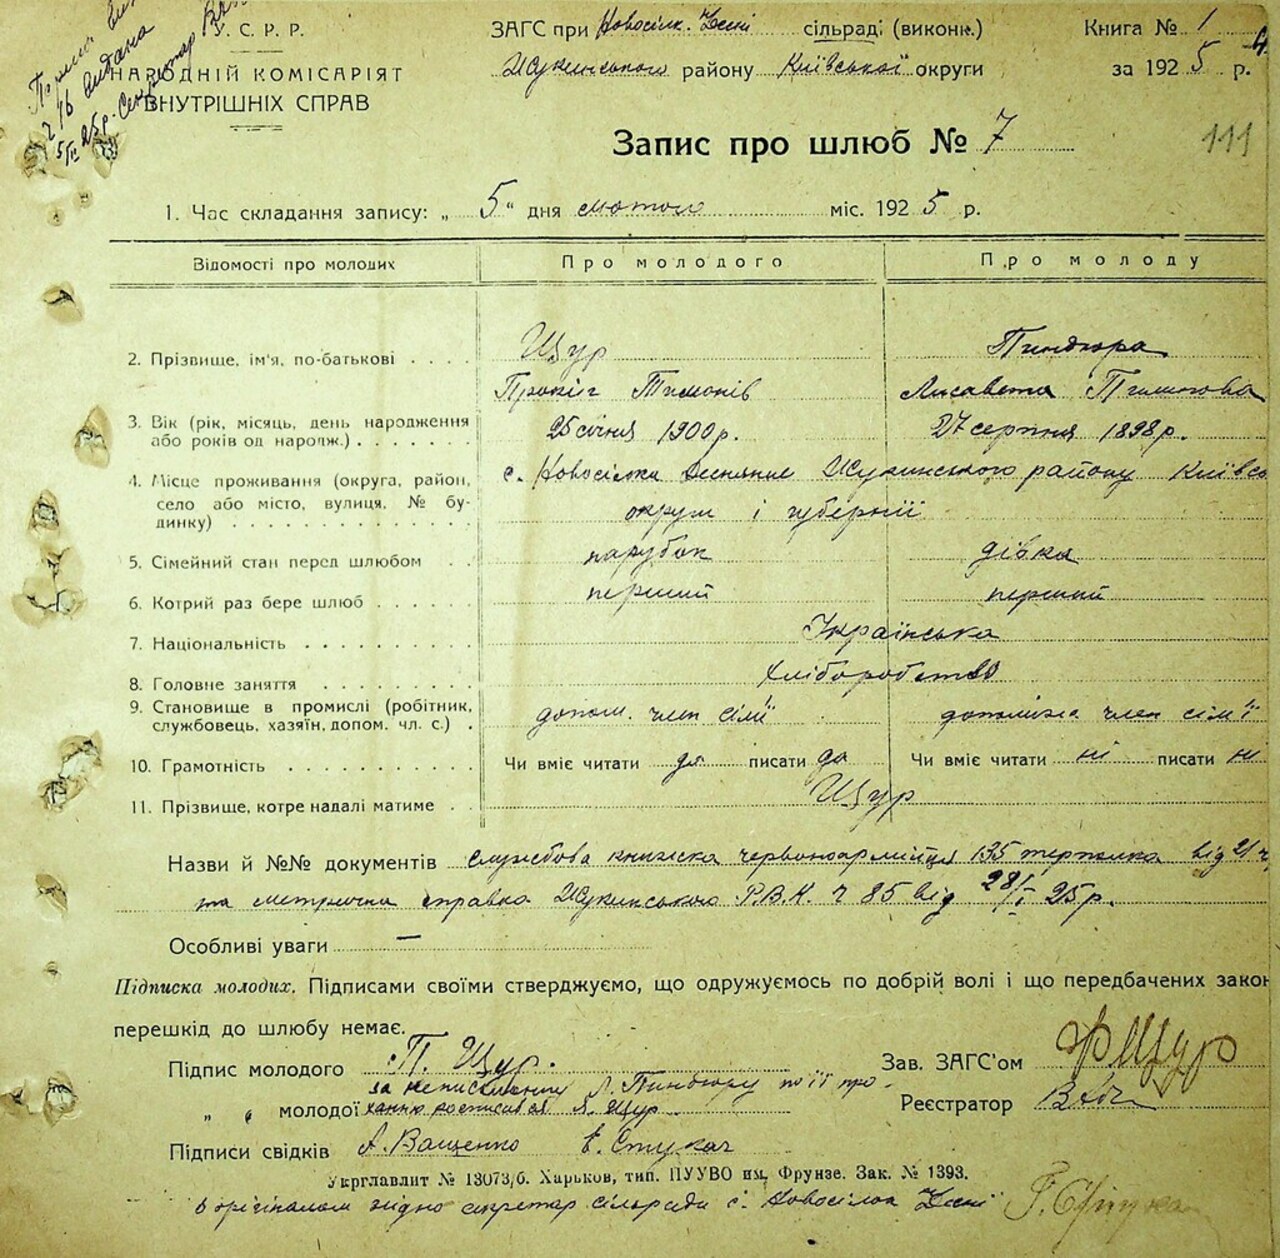 У. С. Р. Р.
НАРОДНІЙ КОМІСАРІЯТ
ВНУТРІШНІХ СПРАВ
ЗАГС при Новосілк. Десні сільраді (виконк.)
Жукинського району Київської округи
Книга № 1
за 1925 р.
Запис про шлюб № 7
111
1. Час складання запису: „5“ дня лютого міс. 1925 р.
Відомості про молодих Про молодого Про молоду
2. Прізвище, ім'я, по-батькові . . . . Щур Пиндюра
Прокіп Тимонів Лисавета
3. Вік (рік, місяць, день народження 25 січня 1900 р. 27 серпня 1898 р.
або років од народж.) . . . . . . .
4. Місце проживання (округа, район, с. Новосілки Деснянські Жукинського району
село або місто, вулиця, № бу- округи і губернії
динку) . . . . . . . . . . . . .
5. Сімейний стан перед шлюбом . . парубок дівка
6. Котрий раз бере шлюб . . . . . . перший перший
7. Національність . . . . . . . . . . Українська
8. Головне заняття . . . . . . . . . Хліборобство
9. Становище в промислі (робітник, допом. член сім'ї допоміжа член сім'ї
службовець, хазяїн, допом. чл. с.) .
10. Грамотність . . . . . . . . . . . Чи вміє читати да писати да Чи вміє читати ні писати ні
11. Прізвище, котре надалі матиме . . Щур
Назви й №№ документів службова книжка червоноармійця 135 від 21
та метрична справка Жукинського Р.В.К. ч 85 від 28/I 25 р.
Особливі уваги —
Підписка молодих. Підписами своїми стверджуємо, що одружуємось по добрій волі і що передбачених закон
перешкід до шлюбу немає.
Підпис молодого П. Щур.
за неписьменну Л. Пиндюру по її про-
„ „ молодої ханню росписався Щур
Зав. ЗАГС'ом Щур
Реєстратор
Підписи свідків А. Ващенко Е. Стукач
Укрглавліт № 13073/б. Харьков, тип. ПУУВО им. Фрунзе. Зак. № 1393.
з орігіналом згідно секретар сільради с. Новосілок Десні